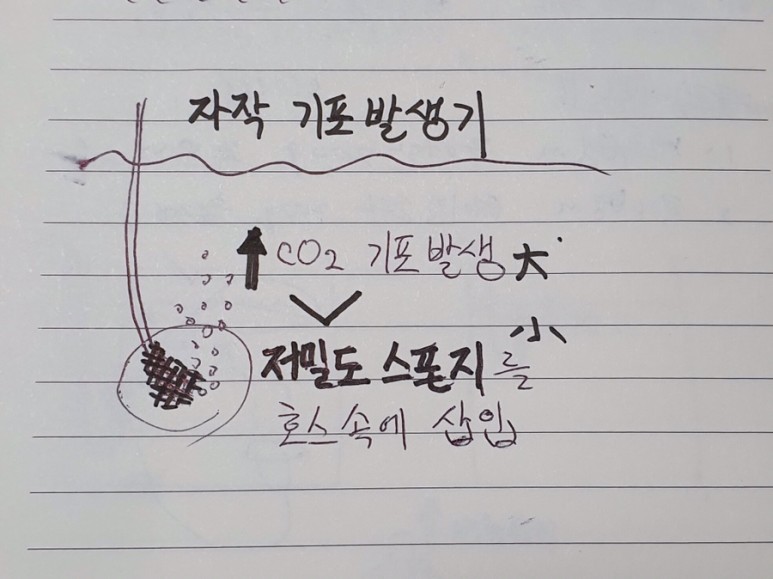 자작 기포발생기
CO2 기포발생 大
저밀도 스폰지를 小
호스속에 삽입